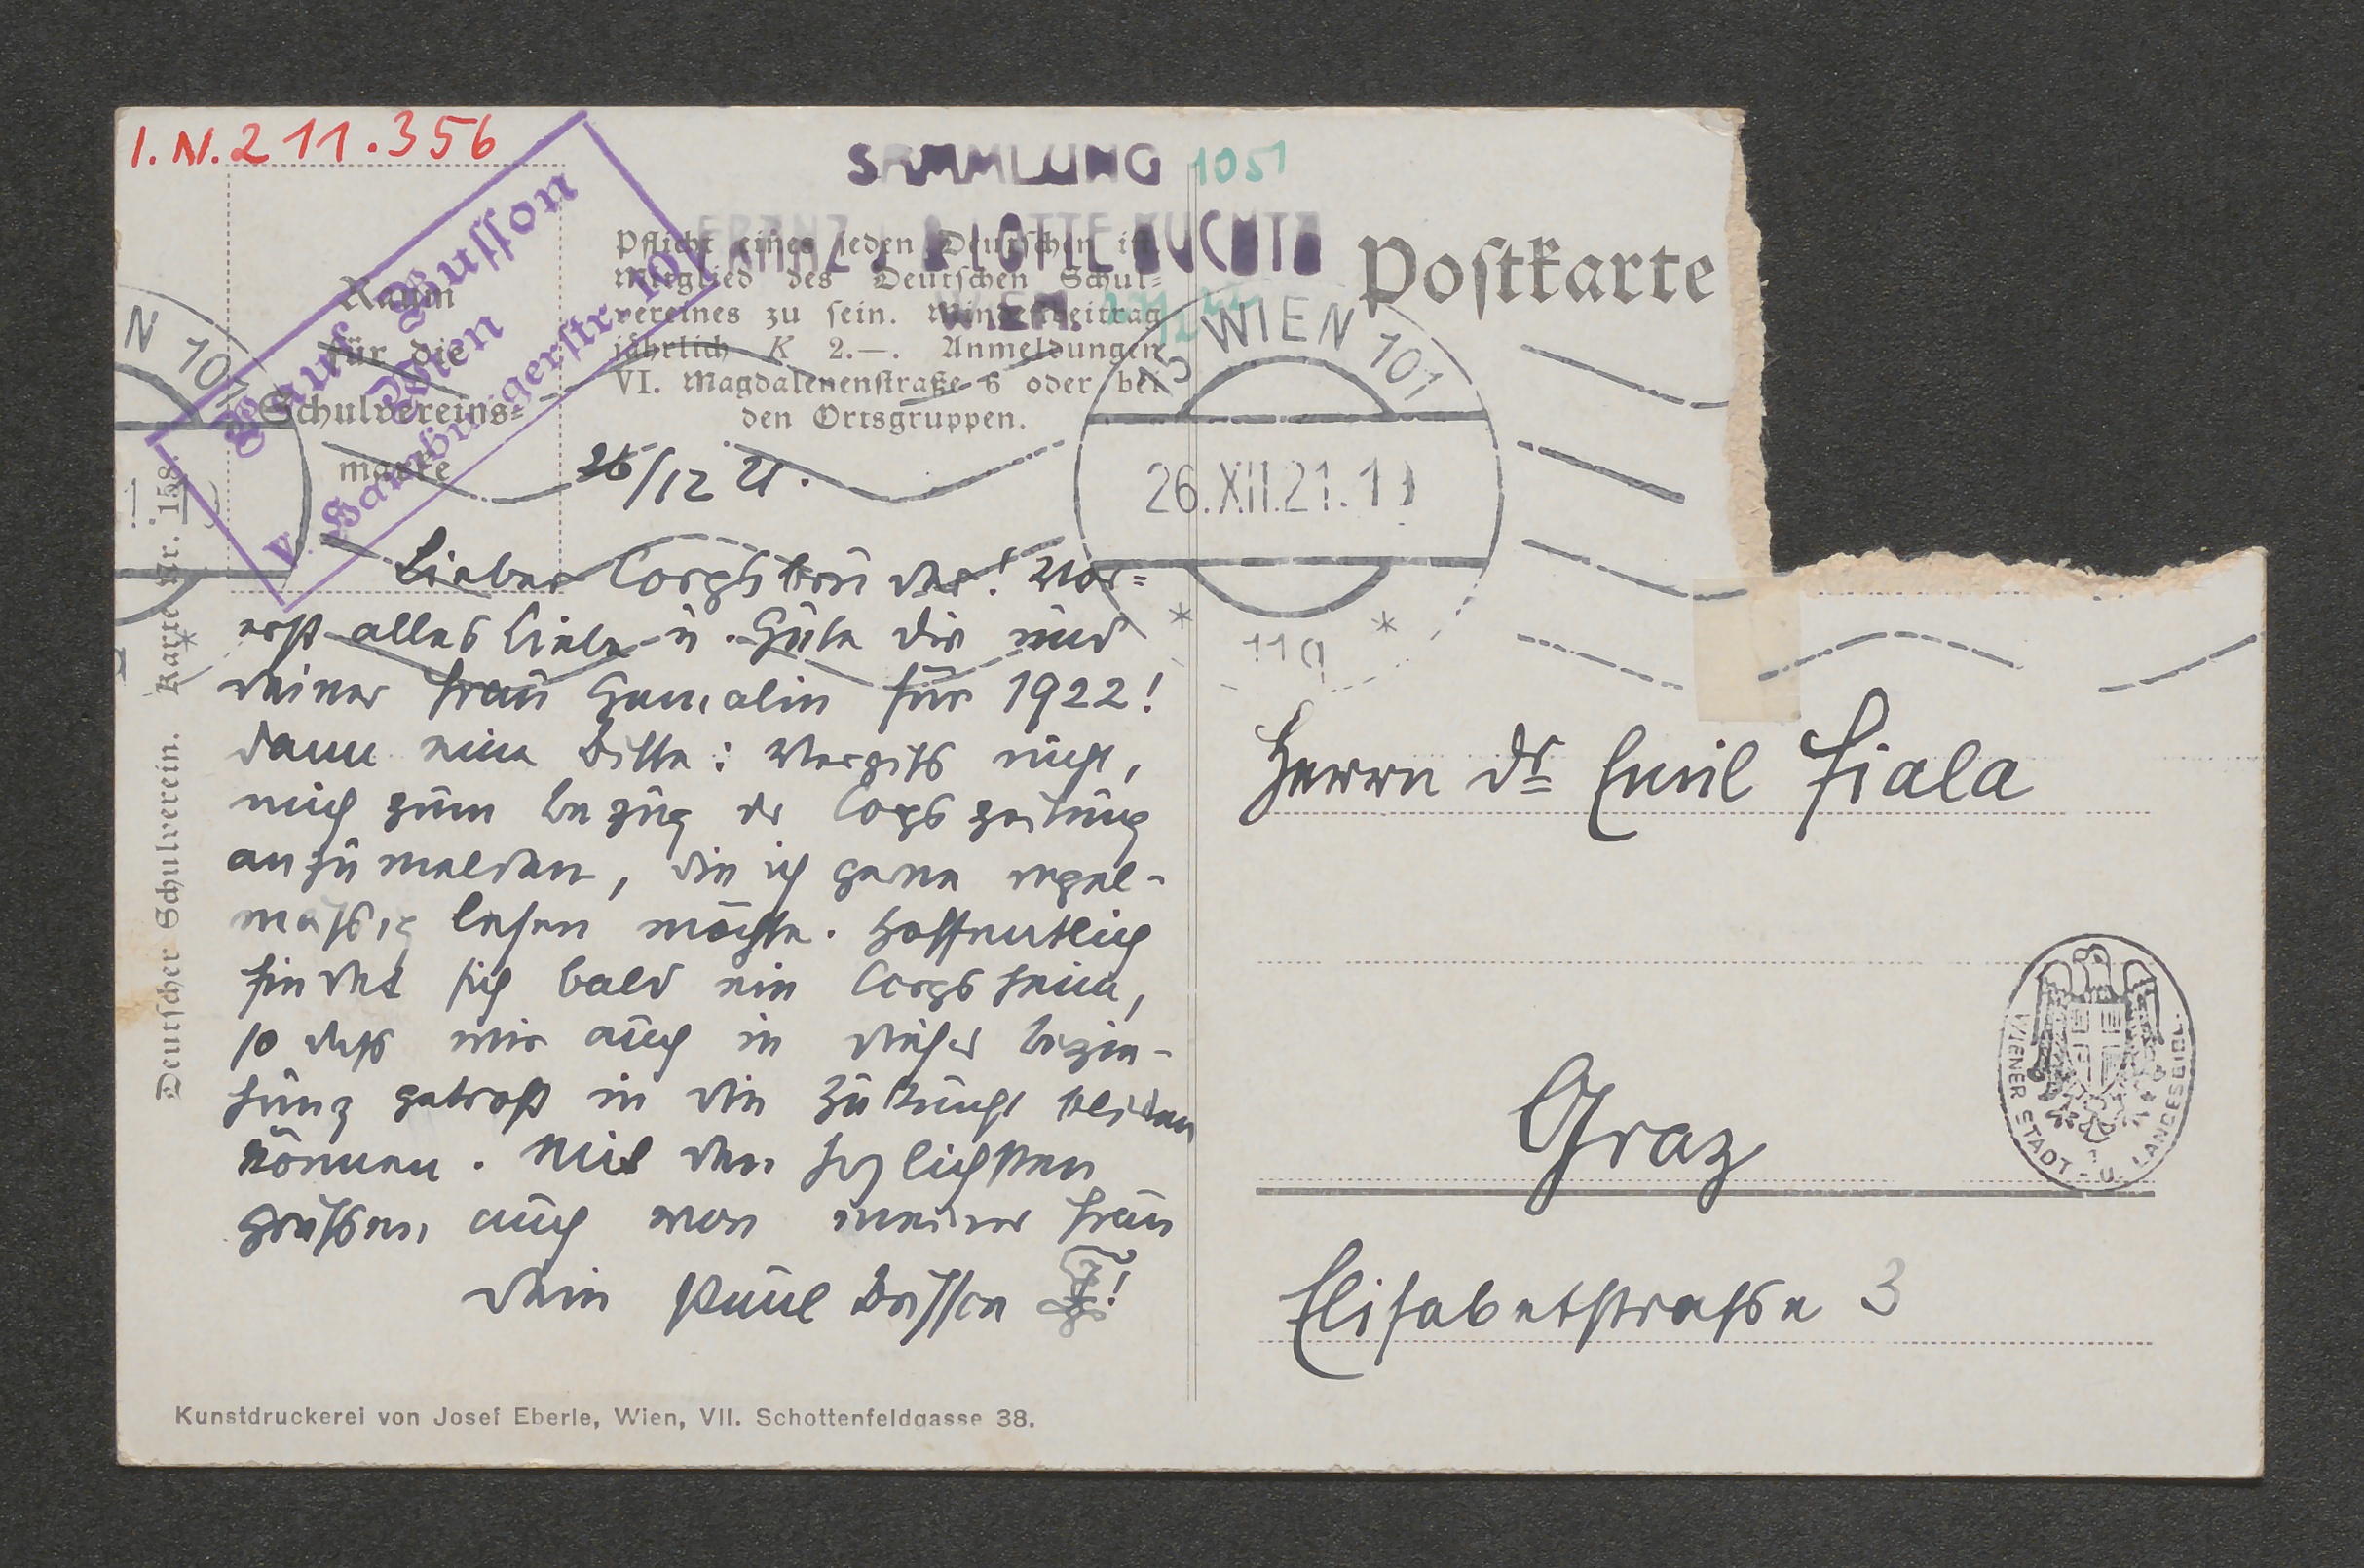 I.N.211.356
SAMMLUNG 1051
FRANZ J. & LOTTE
WIEN
Paul Busson
Wien
V. Hamburgerstr. 10
Raum
für die
Schulvereins-
marke
Pflicht eines jeden Deutschen ist,
Mitglied des Deutschen Schul-
vereines zu sein. Mindestbeitrag
jährlich K 2.—. Anmeldungen
VI. Magdalenenstraße 6 oder bei
den Ortsgruppen.
Postkarte
15 WIEN 101
26.XII.21.
* 11a *
N 101
26/12 21.
Lieber Corpsbruder! Vor-
erst alles Liebe u. Gute dir und
deiner Frau Gemalin für 1922!
Dann eine Bitte: Vergiß nicht,
mich zum Bezug der Corpszeitung
anzumelden, die ich gerne regel-
mäßig lesen möchte. Hoffentlich
findet sich bald ein Corpsheim,
so dass wir auch in dieser Bezie-
hung getrost in die Zukunft blicken
können. Mit den hzlichsten
Grüßen, auch von meiner Frau
Dein Paul Busson
Herrn Dr Emil Fiala
Graz
Elisabetstraße 3
WIENER STADT- U. LANDESBIBL.
Deutscher Schulverein. Karte Nr. 158.
Kunstdruckerei von Josef Eberle, Wien, VII. Schottenfeldgasse 38.